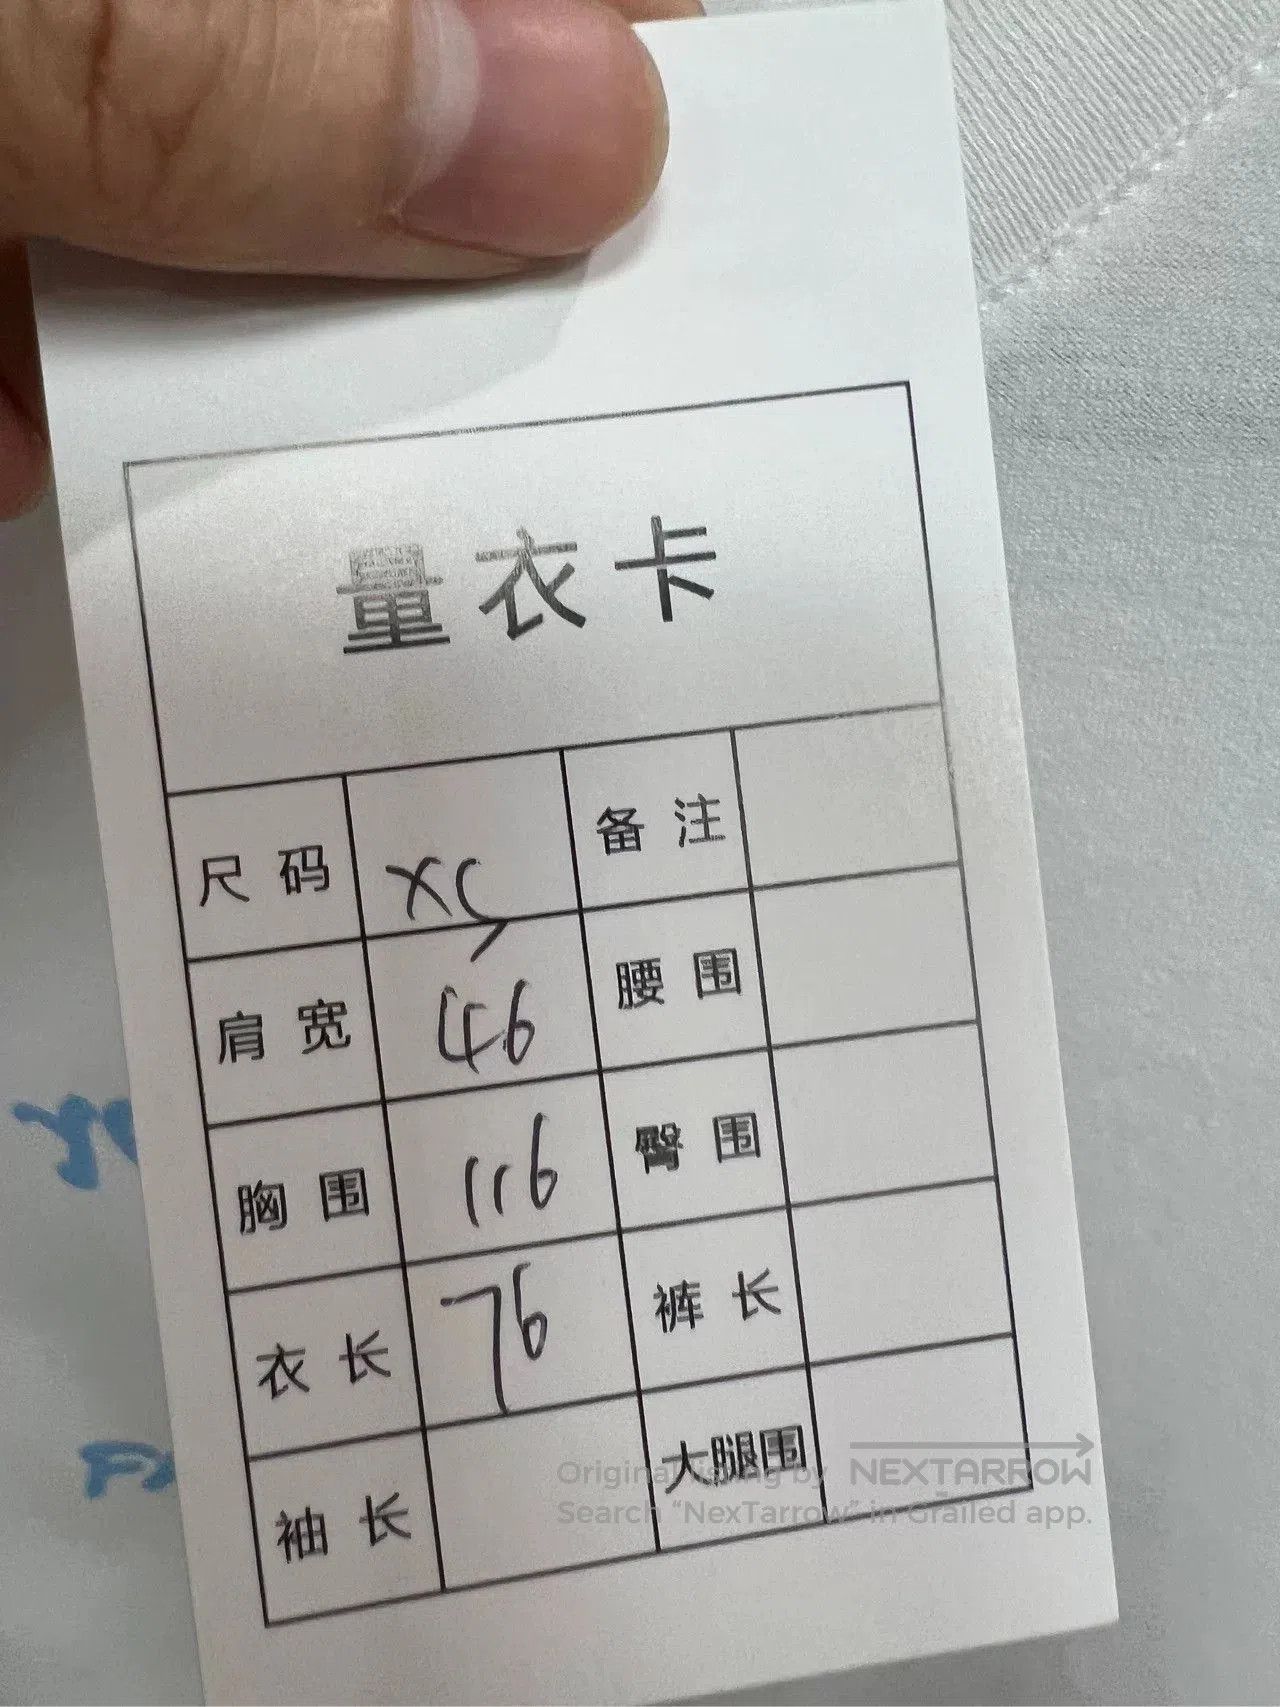 量衣卡
尺码 XS 备注
肩宽 46 腰围
胸围 116 臀围
衣长 76 裤长
袖长 大腿围
Original listing by NEXTARROW
Search "NexTarrow" in Grailed app.